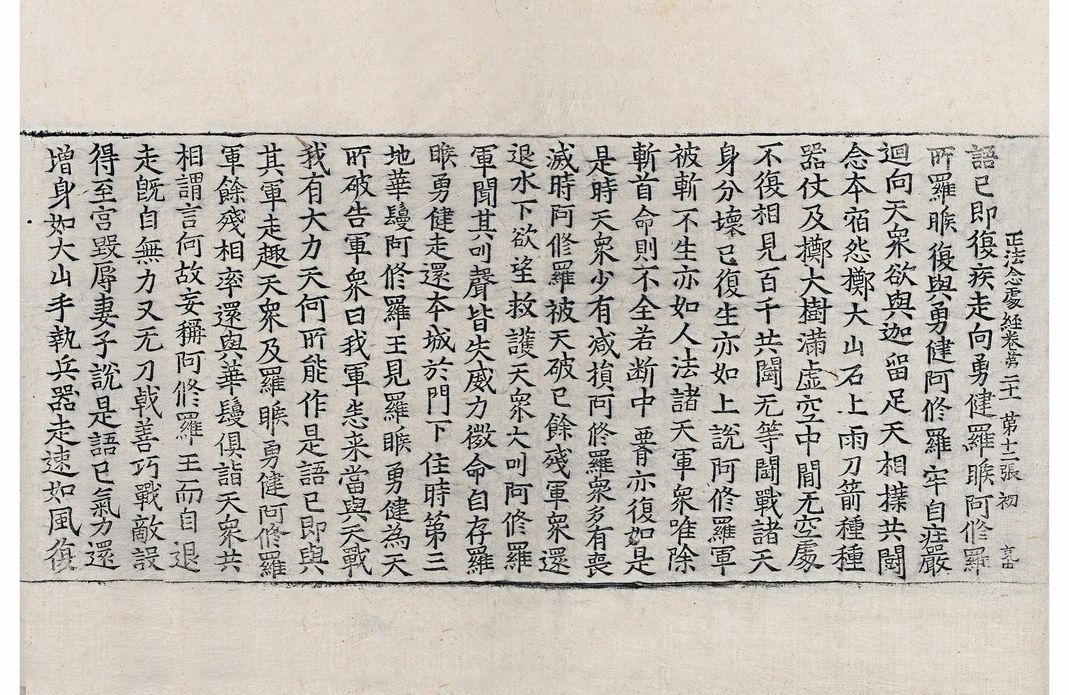 正法念處経卷第二十 第十二張 初
語已即復疾走向勇健羅睺阿修羅
所羅睺復與勇健阿修羅牢自庄嚴
迴向天衆欲與迦留足天相撲共鬪
念本宿怨擲大山石上雨刀箭種種
器仗及擲大樹滿虛空中閒无空處
不復相見百千共鬪无等鬪戰諸天
身分壞已復生亦如上說阿修羅軍
被斬不生亦如人法諸天軍衆唯除
斬首命則不全若断中䯒亦復如是
是時天衆少有減損阿修羅衆多有喪
滅時阿修羅被天破已餘殘軍衆還
退水下欲望救護天衆大叫阿修羅
軍聞其叫聲皆失威力微命自存羅
睺勇健走還本城於門下住時第三
地華鬘阿修羅王見羅睺勇健為天
所破告軍衆曰我軍悉来當與天戰
我有大力天何所能作是語已即與
其軍走趣天衆及羅睺勇健阿修羅
軍餘殘相率還與華鬘俱詣天衆共
相謂言何故妄稱阿修羅王而自退
走旣自無力又无刀戟善巧戰敵設
得至宮毀辱妻子說是語已氣力還
增身如大山手執兵器走速如風復